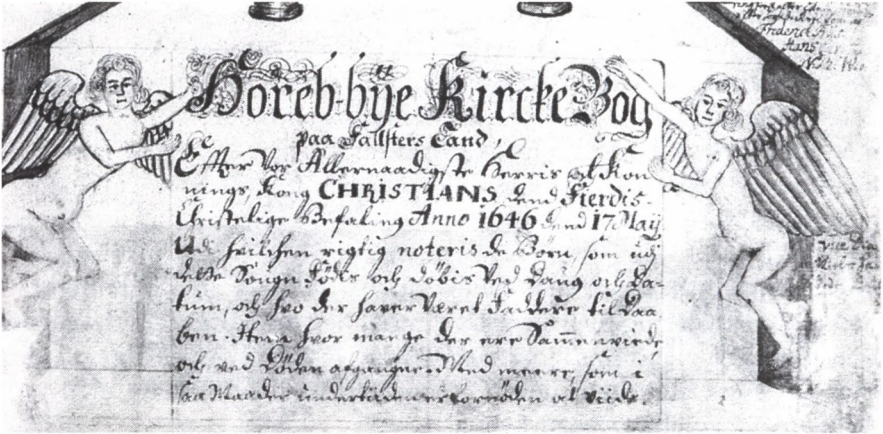 Höreb-bÿe Kircke Bog
paa Fallsters Land,
Effter Vor Allernaadigste Herris och Kon
nings, Kong CHRISTIANS dend Fierdis
Christelige Befaling Anno 1646 dend 17 May
Udi hvilchen rigtig noteris de Börn, som udj
dette Sougn Födis och döbis Ved Daug och Da-
tum, och hvo der haver Veret Faddere til Daa
ben. Item hvor mange der ere Sammenviede,
och ved Döden afganger. Med meere, som i
saa Maader undertiden er fornöden at viide.
Frederic
Hans